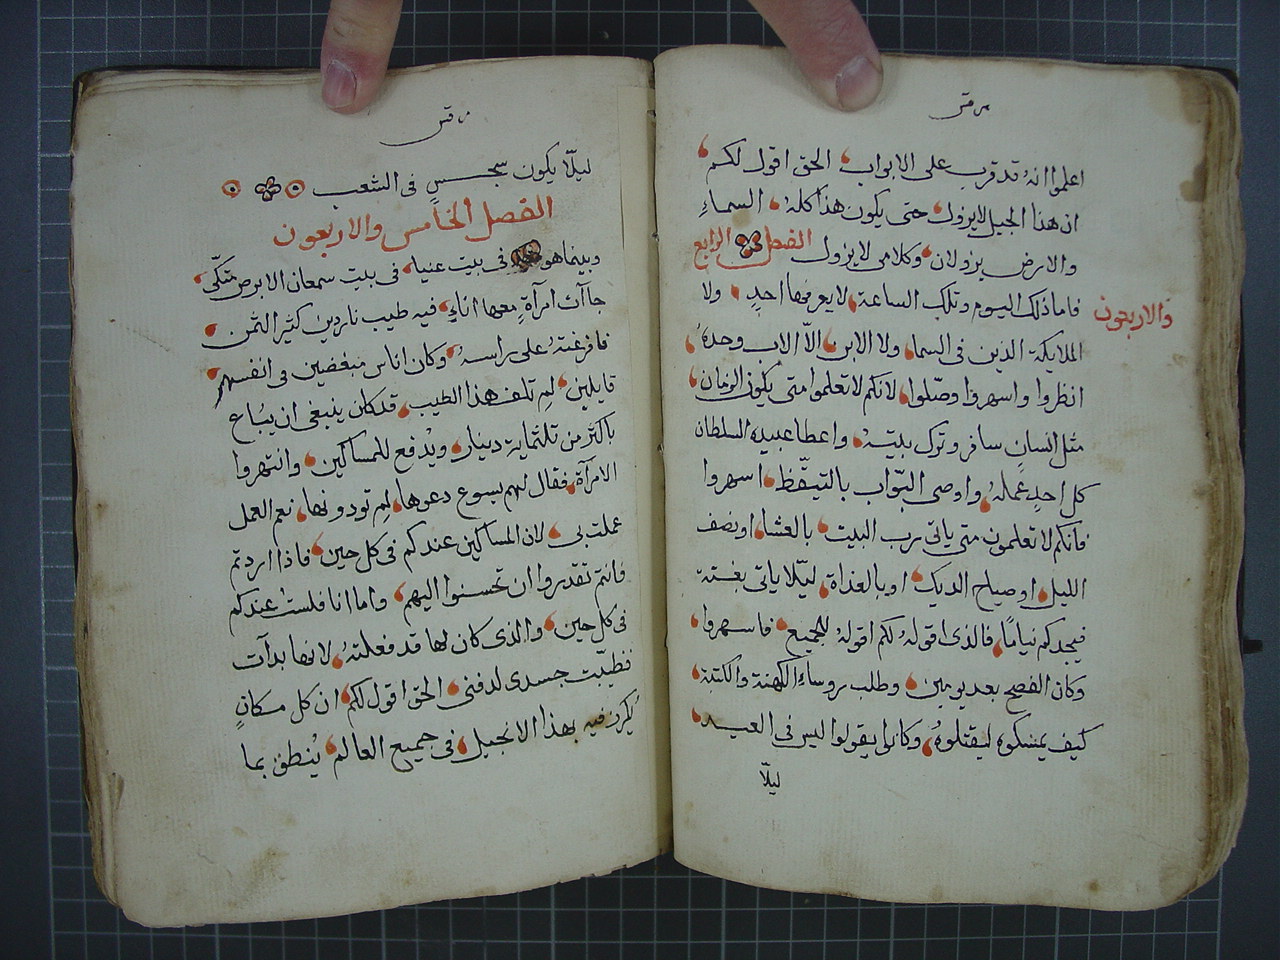 مرقس
اعلموا انهُ قد قرب على الابواب الحق اقول لكم
ان هذا الجيل لا يزول حتى يكون هذا كلهُ السماءِ
والارض يزولان وكلامى لا يزول الفصل الرابع
والاربعون
فاما ذلك اليوم وتلك الساعة لا يعرفها احدٍ ولا
الملايكة الذين فى السما ولا الابن الّا الاب وحدهُ
انظروا واسهروا وصّلوا لانكم لا تعلموا متى يكون الزمان
مثل انسانٍ سافر وترك بيتهُ واعطا عبيده السلطان
كل احدٍ عملهُ واوصى البّواب بالتيقّظ اسهروا
فانكم لا تعلمون متى ياتى رب البيت بالعشا او نصف
الليل او صياح الديك او بالغداة ليّلا ياتى بغتة
فيجدكم نيامًا فالذى اقولهُ لكم اقولهُ للجميع فاسهروا
وكان الفصح بعد يومين وطلب روساءِ الكهنة والكتبة
كيف يمسكوه ليقتلوهُ وكانوا يقولوا ليس فى العيد
ليلّا
مرقس
ليلّا يكون سجسٍ فى الشعب
الفصل الخامس والاربعون
وبينما هو فى بيت عنيا فى بيت سمعان الابرص متّكى
جاآت امرآة معها اناءِ فيه طيب ناردين كثير الثمن
فافرغتهُ على راسهُ وكان اناس مبغضين فى انفسهم
قايلين لِم تلف هذا الطيب قد كان ينبغى ان يبُاع
باكثر من ثلثماية دينار ويُدفع للمساكين وانتهروا
الامرآة فقال لهم يسوع دعوها لِم تودونها نعم العمل
عملت بى لان المساكين عندكم فى كل حين فاذا اردتم
فانتم تقدروا ان تحسنوا اليهم واما انا فلست عندكم
فى كل حين والذى كان لها قد فعلتهُ لانها بدآت
فطيّبت جسدى لدفنى الحق اقول لكم ان كل مكانٍ
يُكرز فيه بهذا الانجيل فى جميع العالم يُنطق بما